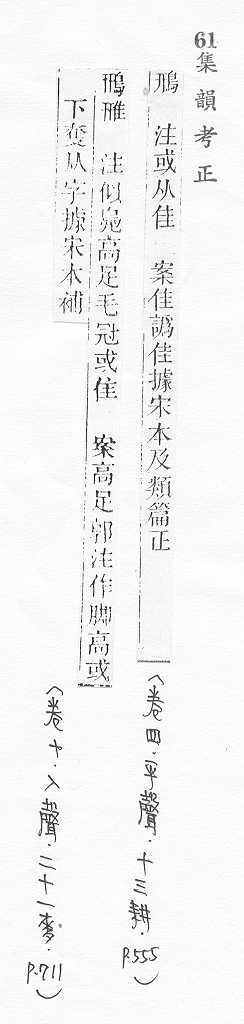 61集韻考正
鳽 注或从佳 案佳譌佳據宋本及類篇正
(卷四.平聲.十三耕.P.555)
鳽雃 注似鳧高足毛冠或隹 案高足郭注作脚高或
下奪从字據宋本補
(卷十.入聲.二十一麥.P.711)